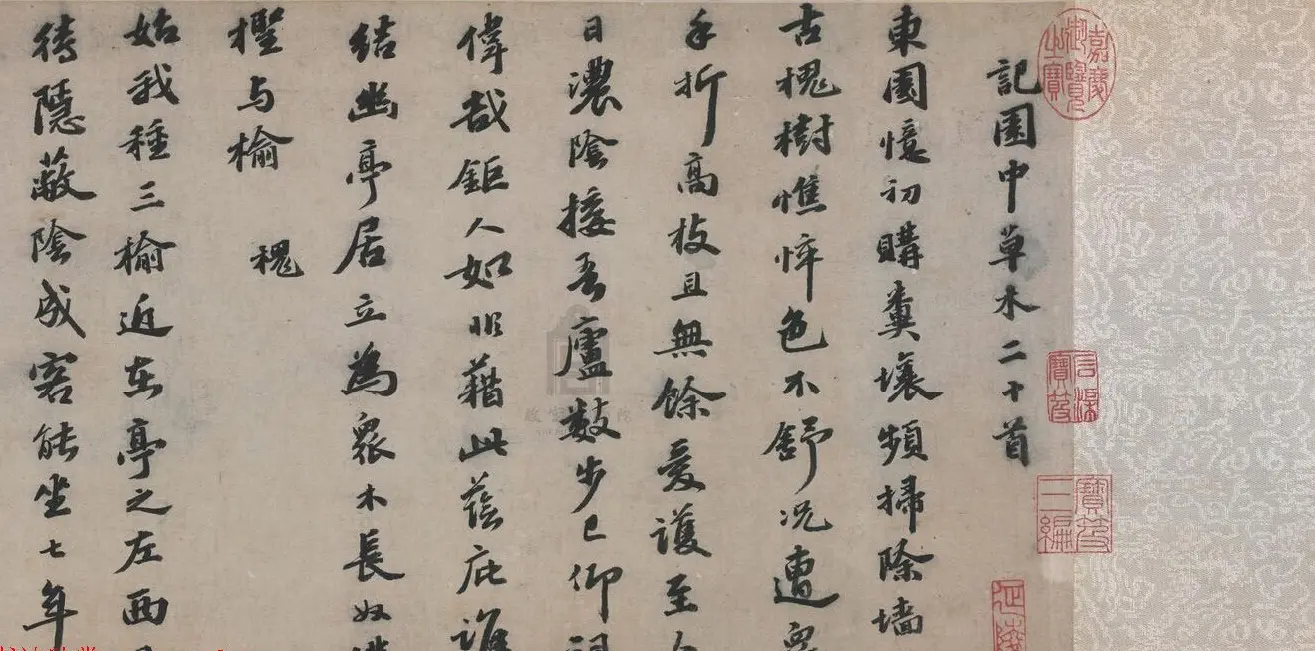 記園中草木二十首
東園憶初購糞壤頻掃除墻
古槐樹憔悴色不舒况遭
手折高枝且無餘愛護至
日濃陰接吾廬數步已仰
偉哉鉅人如昨藉此蔭庇
結幽亭居立為衆木長奴
檉与榆
槐
始我種三榆近在亭之左西
待隱蔽陰成客能坐七年
嘉慶御覽之寶
寶笈三編